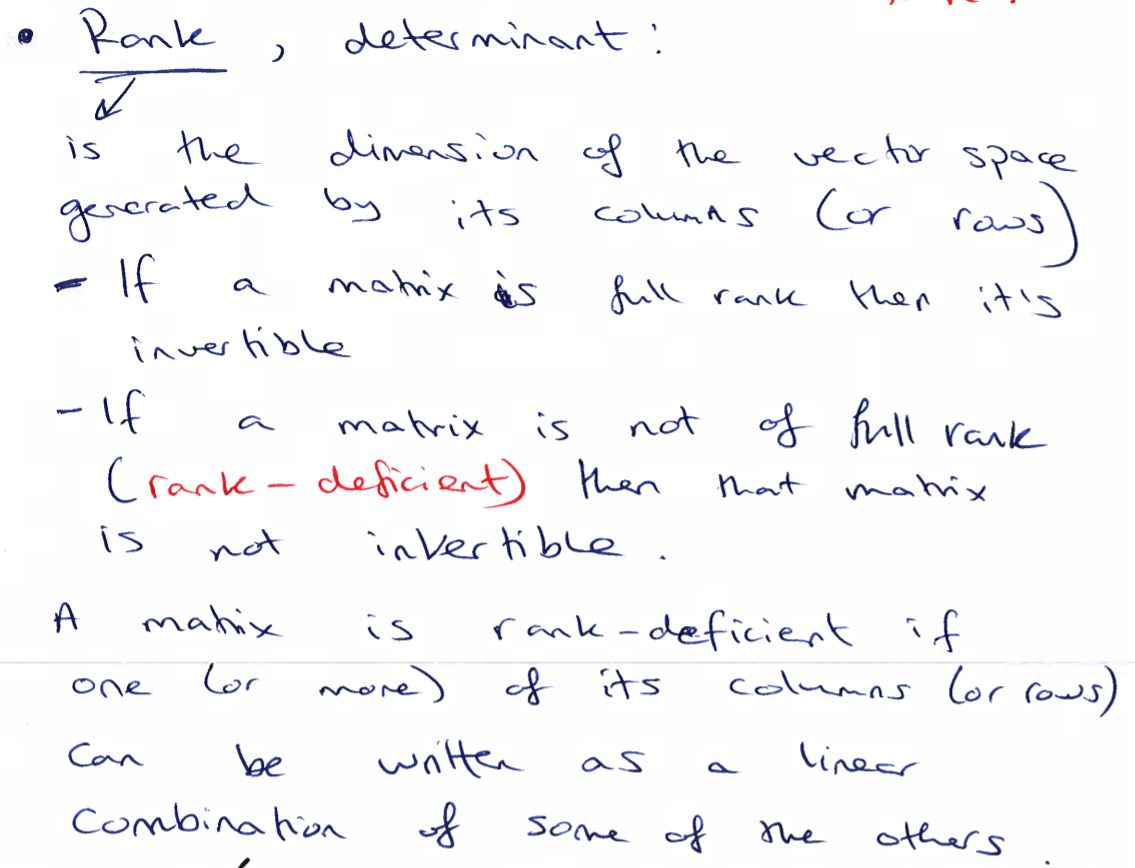 • Rank, determinant:
is the dimension of the vector space
generated by its columns (or rows)
- If a matrix is full rank then it's
invertible
- If a matrix is not of full rank
(rank-deficient) then that matrix
is not invertible.
A matrix is rank-deficient if
one (or more) of its columns (or rows)
can be written as a linear
combination of some of the others.